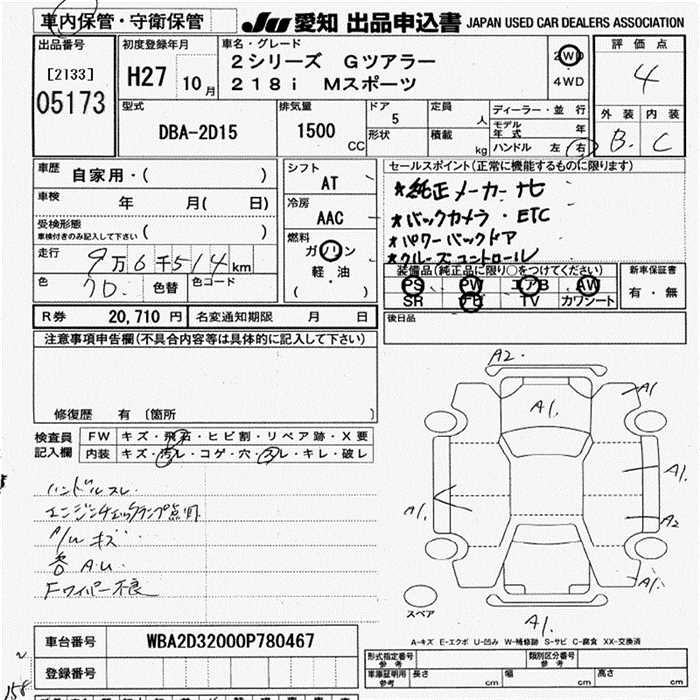 車内保管・守衛保管
JU 愛知 出品申込書 JAPAN USED CAR DEALERS ASSOCIATION
出品番号
[2133]
05173
初度登録年月
H27 10月
車名・グレード
2シリーズ Gツアラー
218i Mスポーツ
2WD
4WD
評価点
4
外装 内装
B. C
型式
DBA-2D15
排気量
1500 CC
ドア
5
形状
定員
人
積載
kg
ディーラー・並行
モデル年式 年
ハンドル 左 右
車歴
自家用・( )
車検
年 月( 日)
受検形態
車検付きのみ記入して下さい ( )
走行
9万6千514km
色
クロ. 色替 色コード
シフト
AT
冷房
AAC
燃料
ガソリン
軽・油
( )
セールスポイント(正常に機能するものに限ります)
★純正メーカーナビ
★バックカメラ・ETC
★パワーバックドア
★クルーズコントロール
装備品(純正品に限り○をつけてください)
PS PW エアB AW
SR TV カワシート
新車保証書
有・無
R券 20,710 円 名変通知期限 月 日
後日品
注意事項申告欄(不具合内容等は具体的に記入して下さい)
修復歴 有 〔箇所 〕
検査員記入欄
FW キズ・飛石・ヒビ割・リペア跡・X要
内装 キズ・汚レ・コゲ・穴・スレ・キレ・破レ
ハンドルスレ.
エンジンチェックランプ点灯
A/W キズ
各 A.U.
Fワイパー不良
A2.
A1.
A1
A1.
A1.
A2
A1.
A1.
スペア
A-キズ E-エクボ U-凹み W-補修跡 S-サビ C-腐食 XX-交換済
車台番号 WBA2D32000P780467
登録番号
型式指定番号
参考
類別区分番号
参考
車庫証明用
参考
長さ cm 幅 cm 高さ cm
158